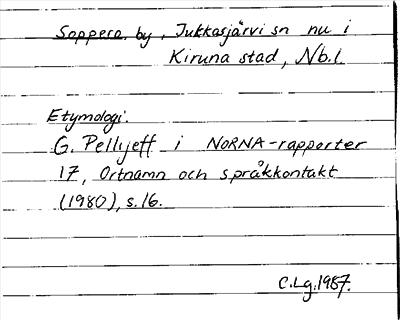 Soppero by, Jukkasjärvi sn nu i
Kiruna stad, Nb.l.
Etymologi:
G. Pellijeff i NORNA-rapporter
17, Ortnamn och språkkontakt
(1980), s. 16.
C.Lg. 1987.